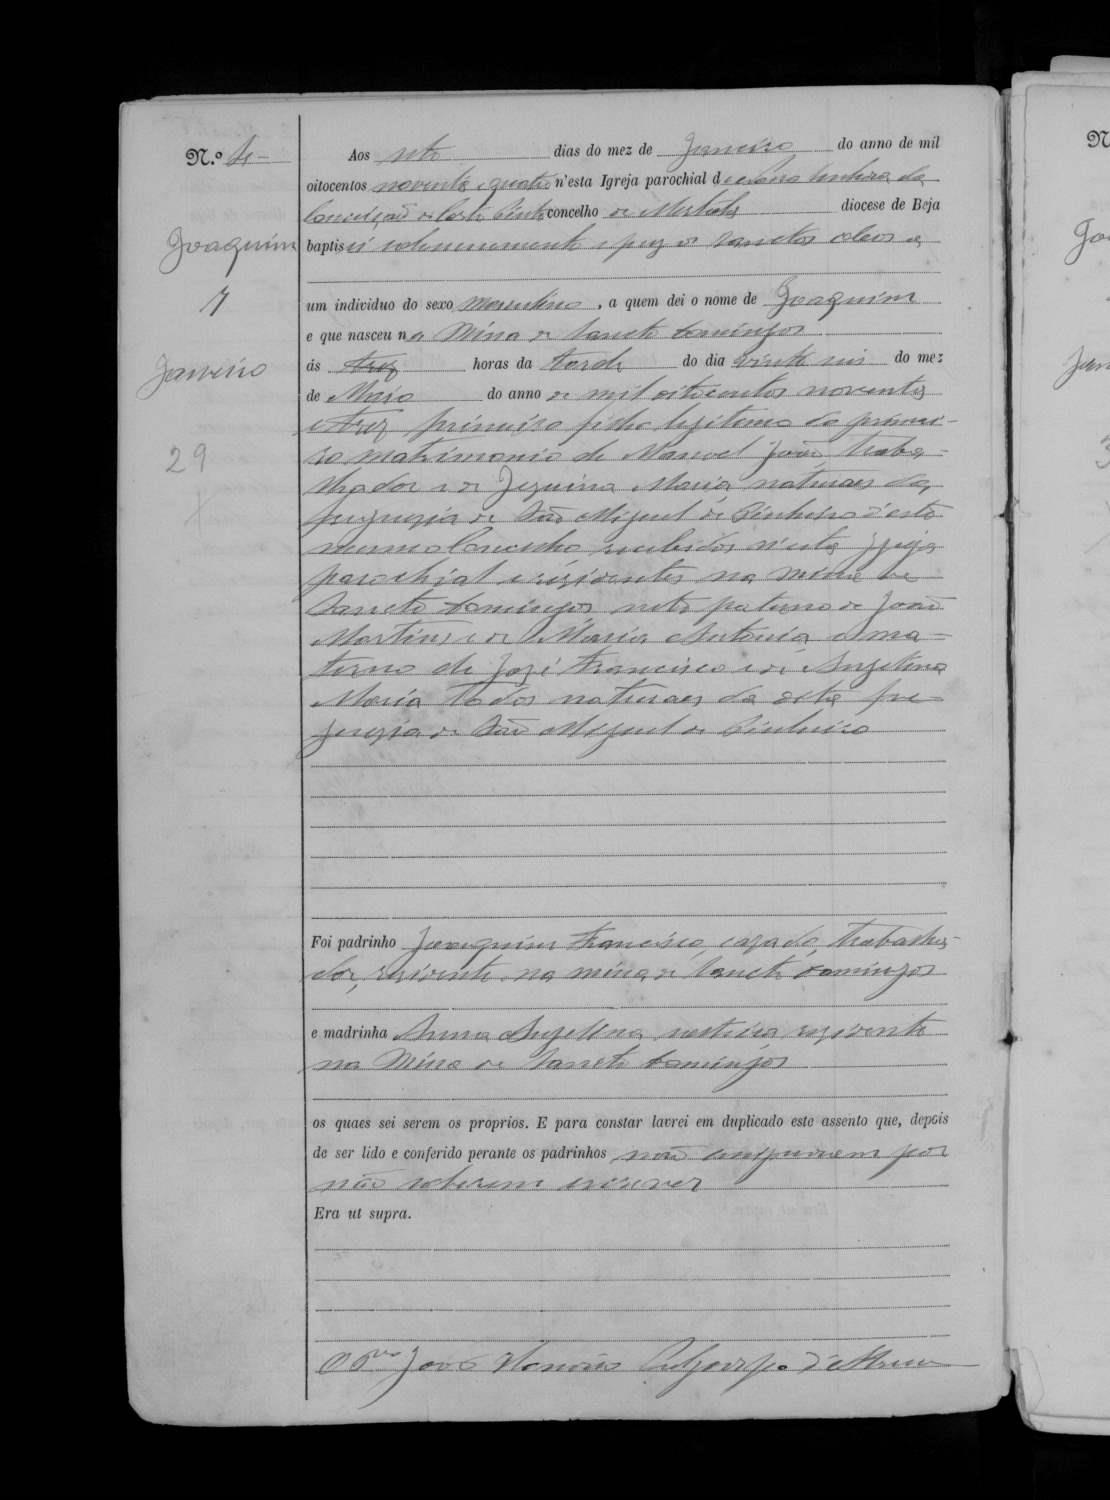 N.º 4-
Joaquim
7
Janeiro
29
Aos sete dias do mez de Janeiro do anno de mil
oitocentos noventa e quatro n'esta Igreja parochial de Nossa Senhora da
Conceição de Corte Pinto concelho de Mertola diocese de Beja
baptisei solemnemente e puz os sanctos oleos a
um individuo do sexo masculino, a quem dei o nome de Joaquim
e que nasceu na Mina de Sancto Domingos
ás trez horas da tarde do dia vinte seis do mez
de Maio do anno de mil oitocentos noventa
e trez primeiro filho legitimo do primei-
ro matrimonio de Manoel João traba-
lhador e de Jequina Maria, naturaes da
freguezia de São Miguel de Pinheiro d'este
mesmo Concelho recebidos n'esta Igreja
parochial e rezidentes na mina de
Sancto Domingos neto paterno de João
Martins e de Maria Antonia e ma-
terno de José Francisco e de Angelina
Maria todos naturaes da dita fre-
guezia de São Miguel de Pinheiro
Foi padrinho Joaquim Francisco, cazado, trabalha-
dor, rezidente na mina de Sancto Domingos
e madrinha Anna Angelina, solteira rezidente
na Mina de Sancto Domingos
os quaes sei serem os proprios. E para constar lavrei em duplicado este assento que, depois
de ser lido e conferido perante os padrinhos não assignarem por
não saberem escrever
Era ut supra.
O Pror João